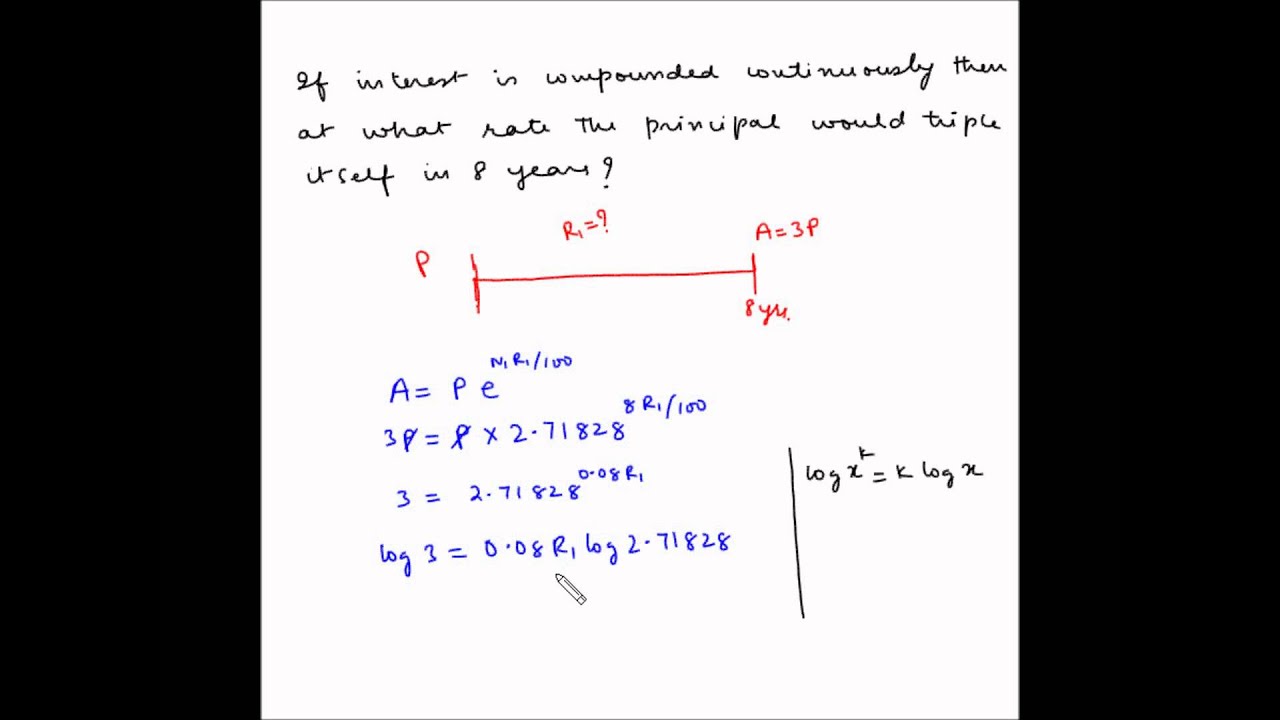 If interest is compounded continuously then
at what rate the principal would triple
itself in 8 years?
R₁=?
A=3P
P
8 yrs.
A = P e^(N₁R₁/100)
3P = P × 2.71828^(8R₁/100)
3 = 2.71828^(0.08R₁)
log x^k = k log x
log 3 = 0.08R₁ log 2.71828